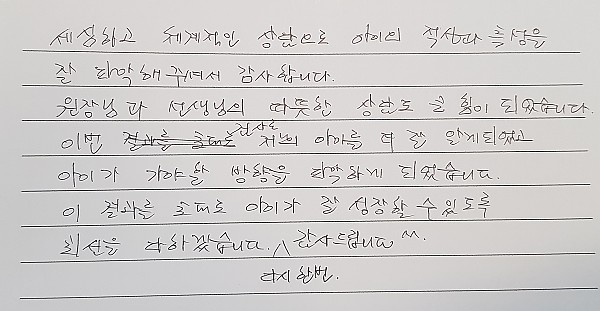 세심하고 체계적인 상담으로 아이의 적성과 특성을
잘 파악해 주셔서 감사합니다.
원장님과 선생님의 따뜻한 상담도 큰 힘이 되었습니다.
이번 결과를 토대로 검사로 저희의 아이를 더 잘 알게되었고
아이가 가야할 방향을 파악하게 되었습니다.
이 결과를 토대로 아이가 잘 성장할 수 있도록
최선을 다하겠습니다. 감사드립니다 ^^.
다시한번.